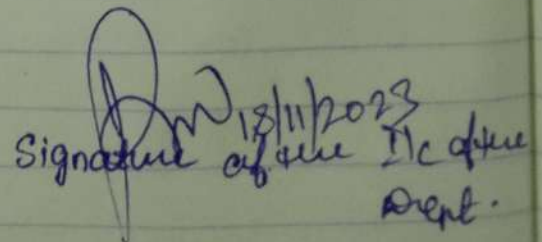 18/11/2023
Signature of the I/c of the
Dept.